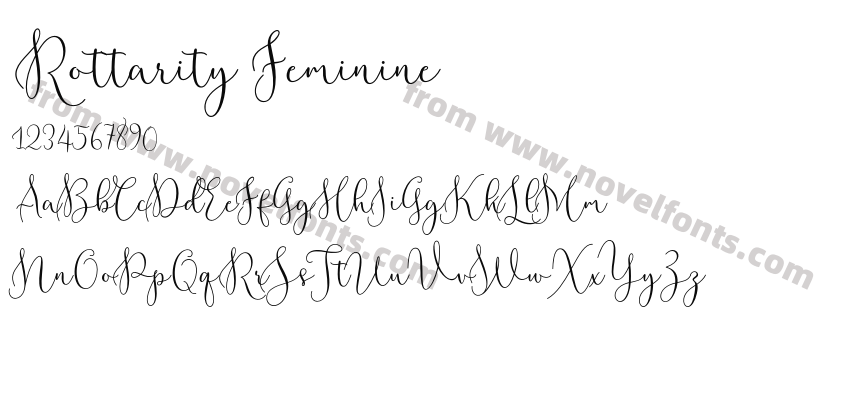 Rottarity Feminine
from www.novelfonts.com
from www.novelfonts.com
1234567890
AaBbCcDdEeFfGgHhIiGgKkLlMm
NnOoPpQqRrSsTtUuVvWwXxYyZz